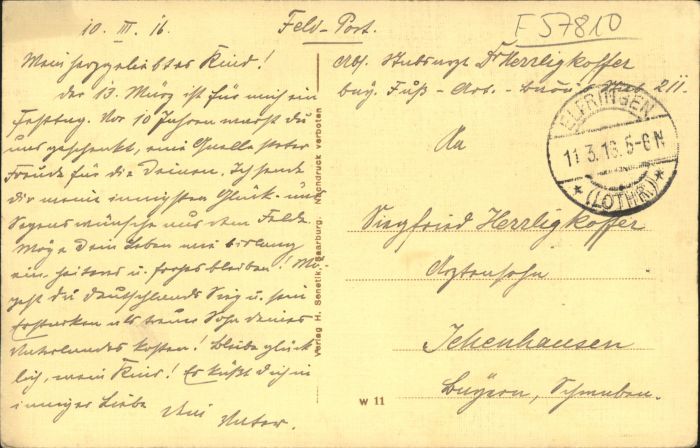 10. III. 16.
Mein herzgeliebtes Kind!
Der 13. März ist für mich ein
Festtag. Vor 10 Jahren warst du
uns geschenkt, eine Quelle steter
Freude für die Deinen. Ich sende
dir meine innigsten Glück- und
Segenswünsche aus dem Felde.
Möge dein Leben wie bislang
ein heiteres u. frohes bleiben! Mö-
gest du Deutschlands Sieg u. sein
Erstarken als treuer Sohn deines
Vaterlandes kosten! Bleibe glück-
lich, mein Kind! Es küßt dich in
inniger Liebe
Dein
Vater.
Verlag H. Senetik, Saarburg. Nachdruck verboten
Feld-Post.
F 57810
Abs. Stabsarzt Dr Herrligkoffer
bay. Fuß-Art.- Batt. 211.
ELFRINGEN
11.3.16. 5-6 N
* (LOTHR.) *
An
Siegfried Herrligkoffer
Arztensohn
Ichenhausen
Bayern, Schwaben.
W 11